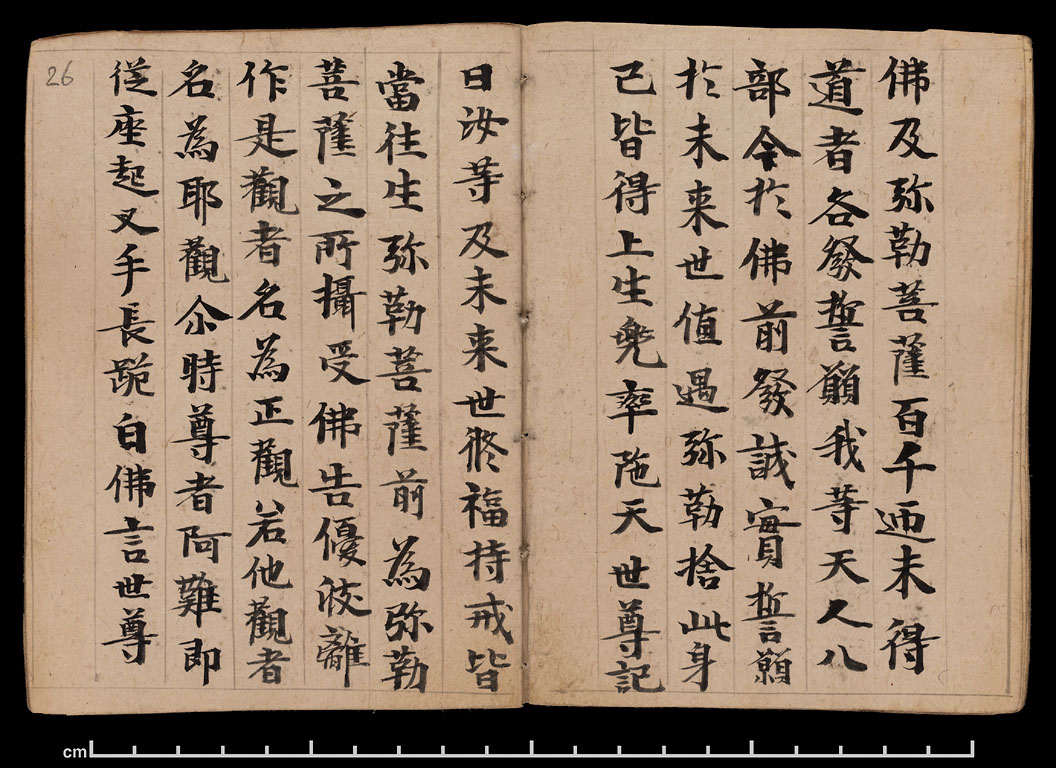 佛及弥勒菩薩百千迊未得
道者各發誓願我等天人八
部今於佛前發誠實誓願
於未来世值遇弥勒捨此身
已皆得上生兜率陁天世尊記
曰汝等及未来世修福持戒皆
當往生弥勒菩薩前為弥勒
菩薩之所攝受佛告優波離
作是觀者名為正觀若他觀者
名為耶觀尒時尊者阿難即
從座起叉手長跪白佛言世尊
26
cm